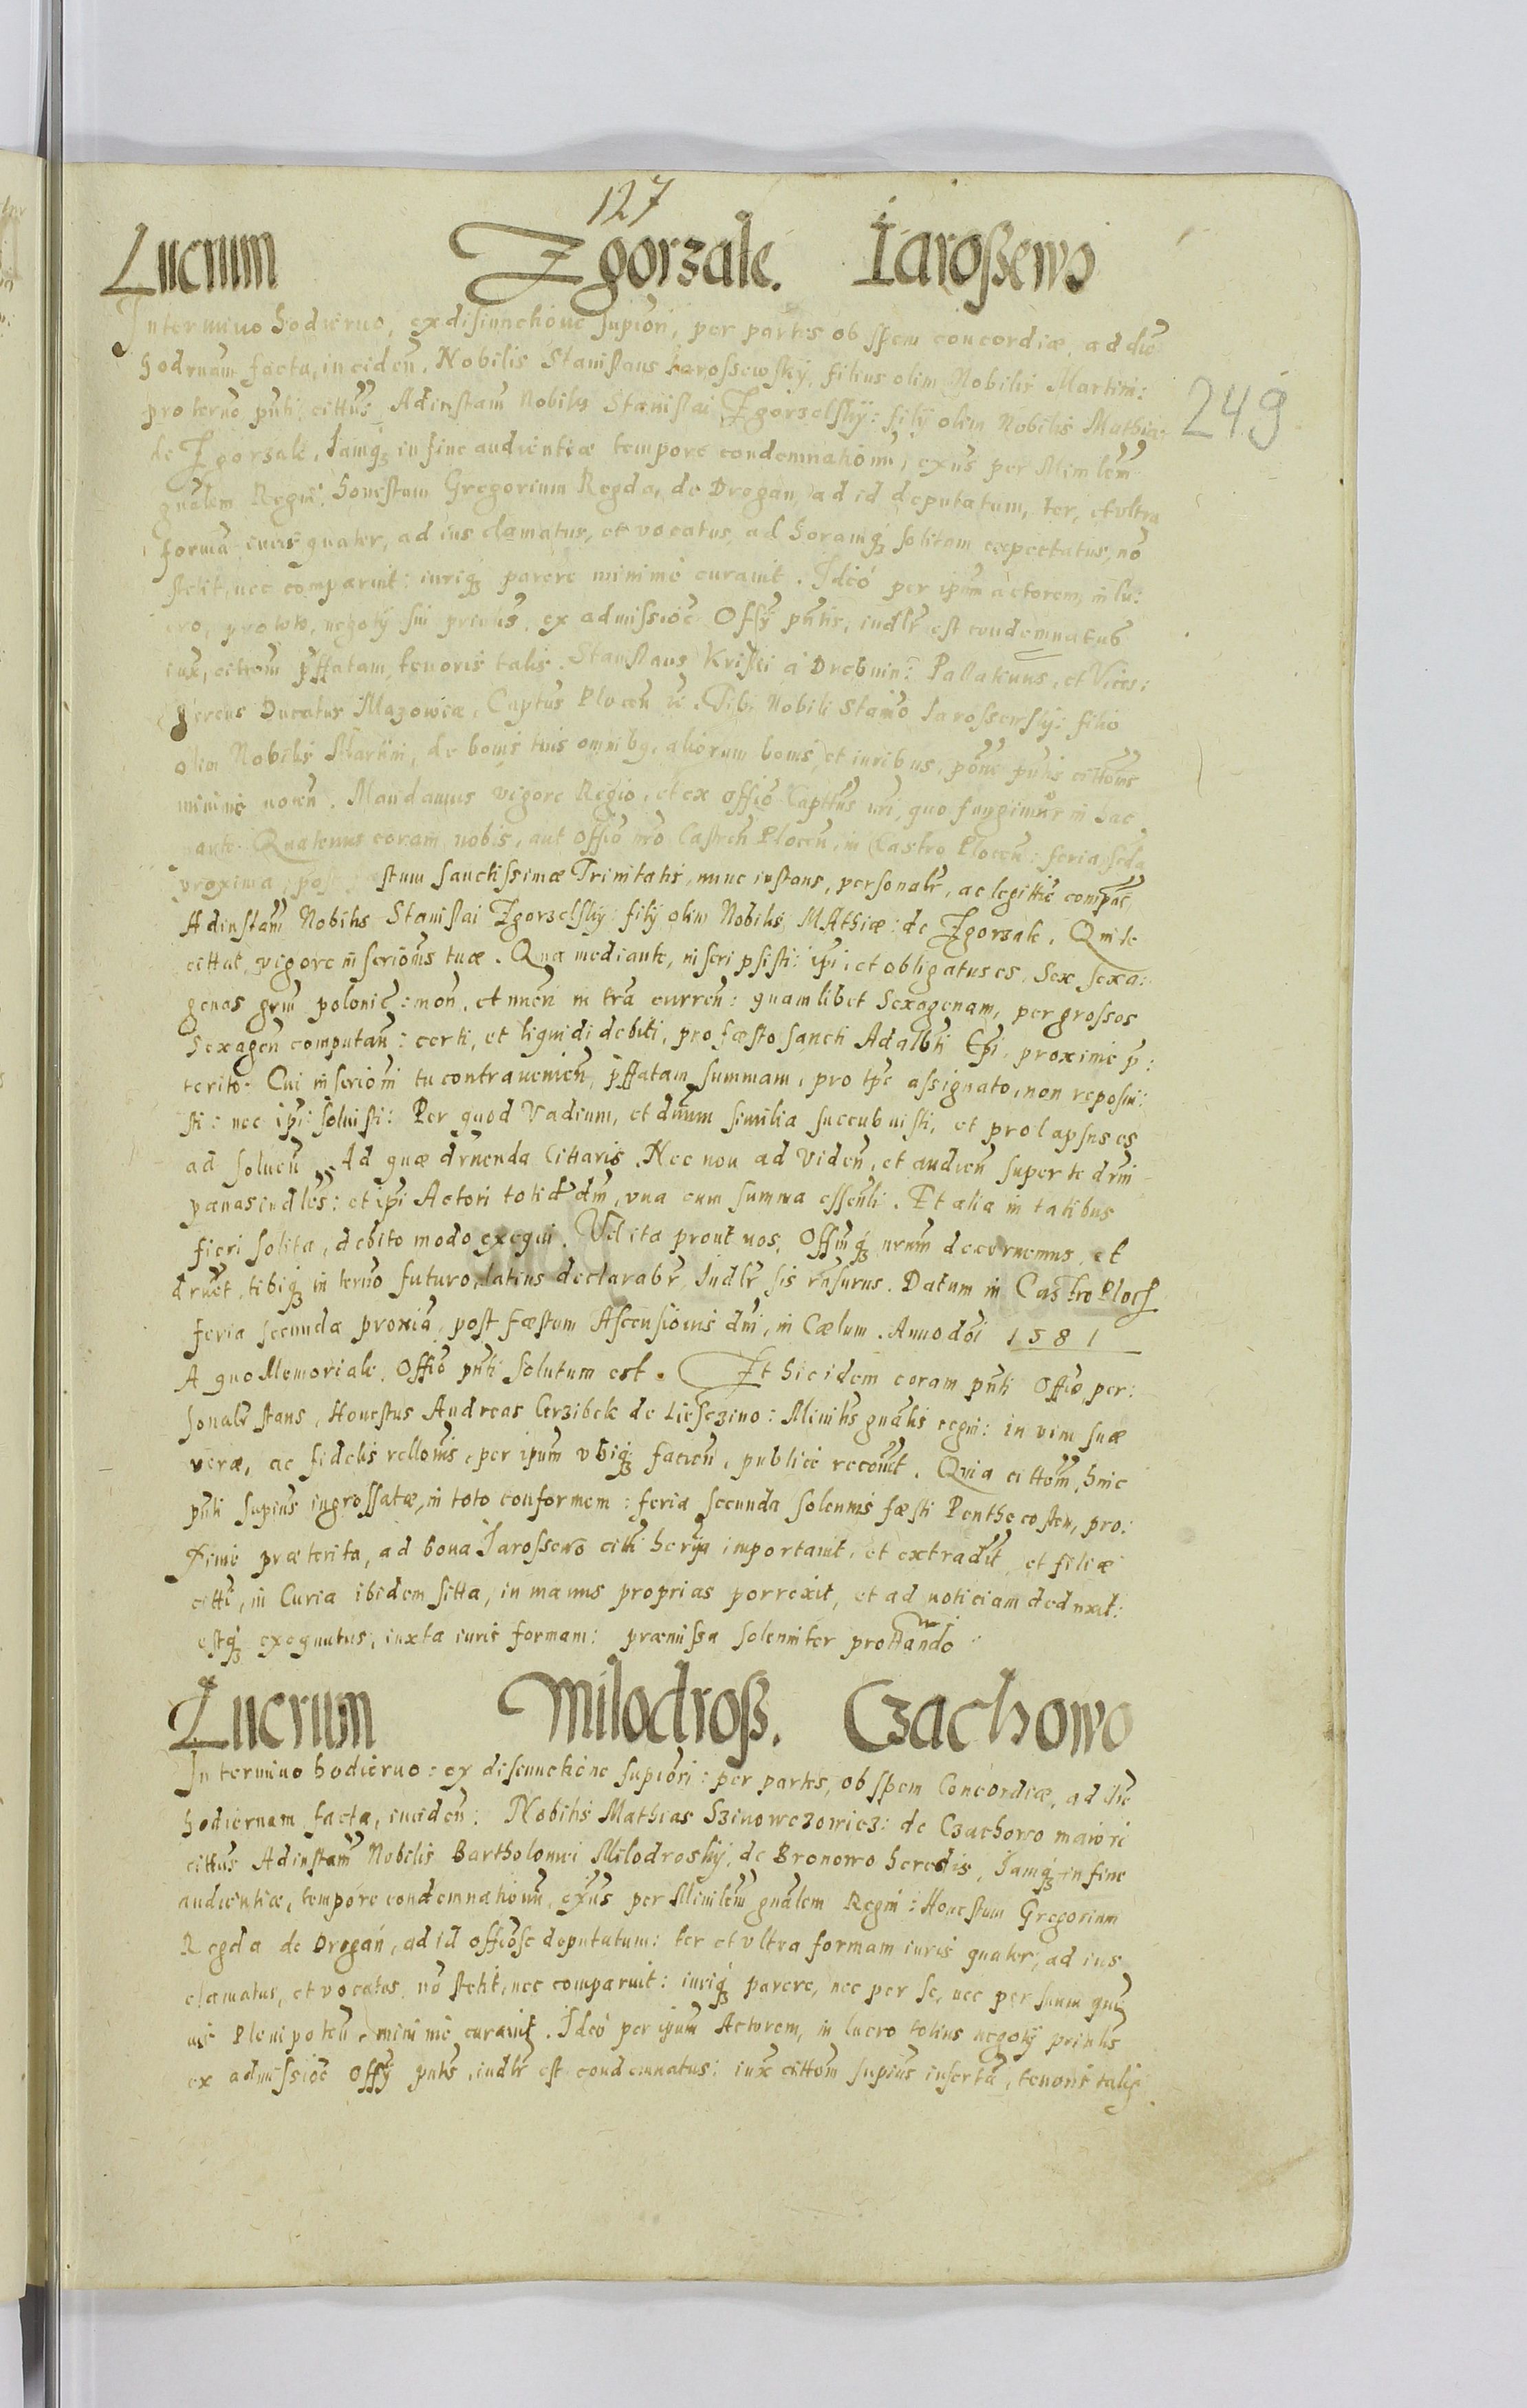 127
Lucrum Zgorzale. Iaroßewo
In termino hodierno, ex disiunctione supiori, per partes ob spem concordiæ, ad diē
hodrnam facta, inciden. Nobilis Stanislaus Iarossewsky, filius olim Nobilis Martini:
pro terno pnti cittus, Ad instam Nobilis Stanislai Zgorzelsky: filij olim Nobilis Mathiæ
249
de Zgorzale, Iamq; in fine audientiæ tempore condemnationu, exns per Minlem
gnalem Regni: honestum Gregorium Regda, de Drogan, ad id deputatum, ter, et ultra
formā iuris quater, ad ius clamatus, et vocatus, ad horamq; solitam expectatus, nō
stetit, nec comparuit: iuriq; parere minime curauit. Ideo per ipum actorem, in lu:
cro, pro toto, negoty sui prinlis, ex admissiōe Offy pntis, iudlr est condemnatus
iux, cittom pffatam, tenoris talis. Stanslaus Kriski a Drobnin: Pallatinus, et Vices:
gerens Ducatus Mazowiæ, Captus Plocen &c. Tibi Nobili Stanio Iarossewsky: filio
olim Nobilis Martini, de bonis tuis omnibq, aliorum bonis, et iuribus, pōne pntis cittonis
minime nocen. Mandamus vigore Regio, et ex offio Capttus nri, quo fungimur in hac
parte. Quatenus coram nobis, aut offio nro Castren Plocen, in Castro Plocen: feria scda
proxima, post stum Sanctissimæ Trinitatis, nunc instans, personalr, ac legittie compac,
Ad instam Nobilis Stanislai Zgorzelsky: filij olim Nobilis MAthiæ: de Zgorzale. Qui te
cittat, vigore inscrionis tuæ. Qua mediante, inscripsisti: ipi, et obligatus es, Sex sexa:
genas grm polonic: mon, et nuen in tra curren: quamlibet Sexagenam, per grossos
Sexagen computan: certi, et liquidi debiti, pro fæsto sancti Adalbti Epi, proxime p:
terito. Cui inscrioni tu contravenien, pffatam summam, pro tpe assignato, non reposui:
sti: nec ipi: soluisti: Per quod Vadium, et dnum similia succubuisti, et prolapsus es
ad soluen. Ad quæ drnenda Cittaris. Nec non ad viden, et audien super te drni
pænas iudles: et ipi Actori totid dm, una cum summa essenli. Et alia in talibus
fieri solita, debito modo exequi. Vel ita prout nos, Offinq; nrum decernemus, et
druet, tibiq; in terno futuro, latius declarabr Iudlr sis rnsurus. Datum in Castro Ploc
feria secunda proxia, post Fæstum Ascensionis dni, in Cælum. Anno doi 1581
A quo Memoriale, Offio pnti solutum est. Et hic idem coram pnti Offio, per:
sonalr stans, Honestus Andreas Grzibek de Liesezino: Minlis gnalis regni: in vim suæ
veræ, ac fidelis rellonis, per ipum ubiq; facien, publice recouit. Quia cittom, hinc
pnti supius ingrossatæ, in toto conformem: feria secunda solennis fæsti Penthecosten, pro:
xime præterita, ad bona Iarossewo citti herija importauit, et extradit, et filiæ
citti, in Curia ibidem sitta, in manus proprias porrexit, et ad noticiam deduxit:
estq; exequutus, iuxta iuris formam: præmissa solenniter prottando
Lucrum Milodroß. Czachowo
In termino hodierno: ex disiunctione supiori: per partes, ob spem Concordiæ, ad diē
hodiernam facta, inciden: Nobilis Mathias Szinowczowicz: de Czachowo maiori
cittus Ad instam Nobilis Bartholomei Milodrosky, de Bronowo heredis, Iamq; in fine
audientiæ, tempore condemnationu, exns per Minilem gnalem Regni: Honestum Gregorium
Regda de Drogan, ad id offiose deputatum: ter et ultra formam iuris quater, ad ius
clamatus, et vocatus, nō stetit, nec comparuit: iuriq; parere, nec per se, nec per suum quē
uis Plenipoten, minime curauit. Ideo per ipum Actorem, in lucro totius negoty prinlis
ex admissiōe Offy pntis, iudlr est condemnatus: iux cittom supius insertā, tenoris talis